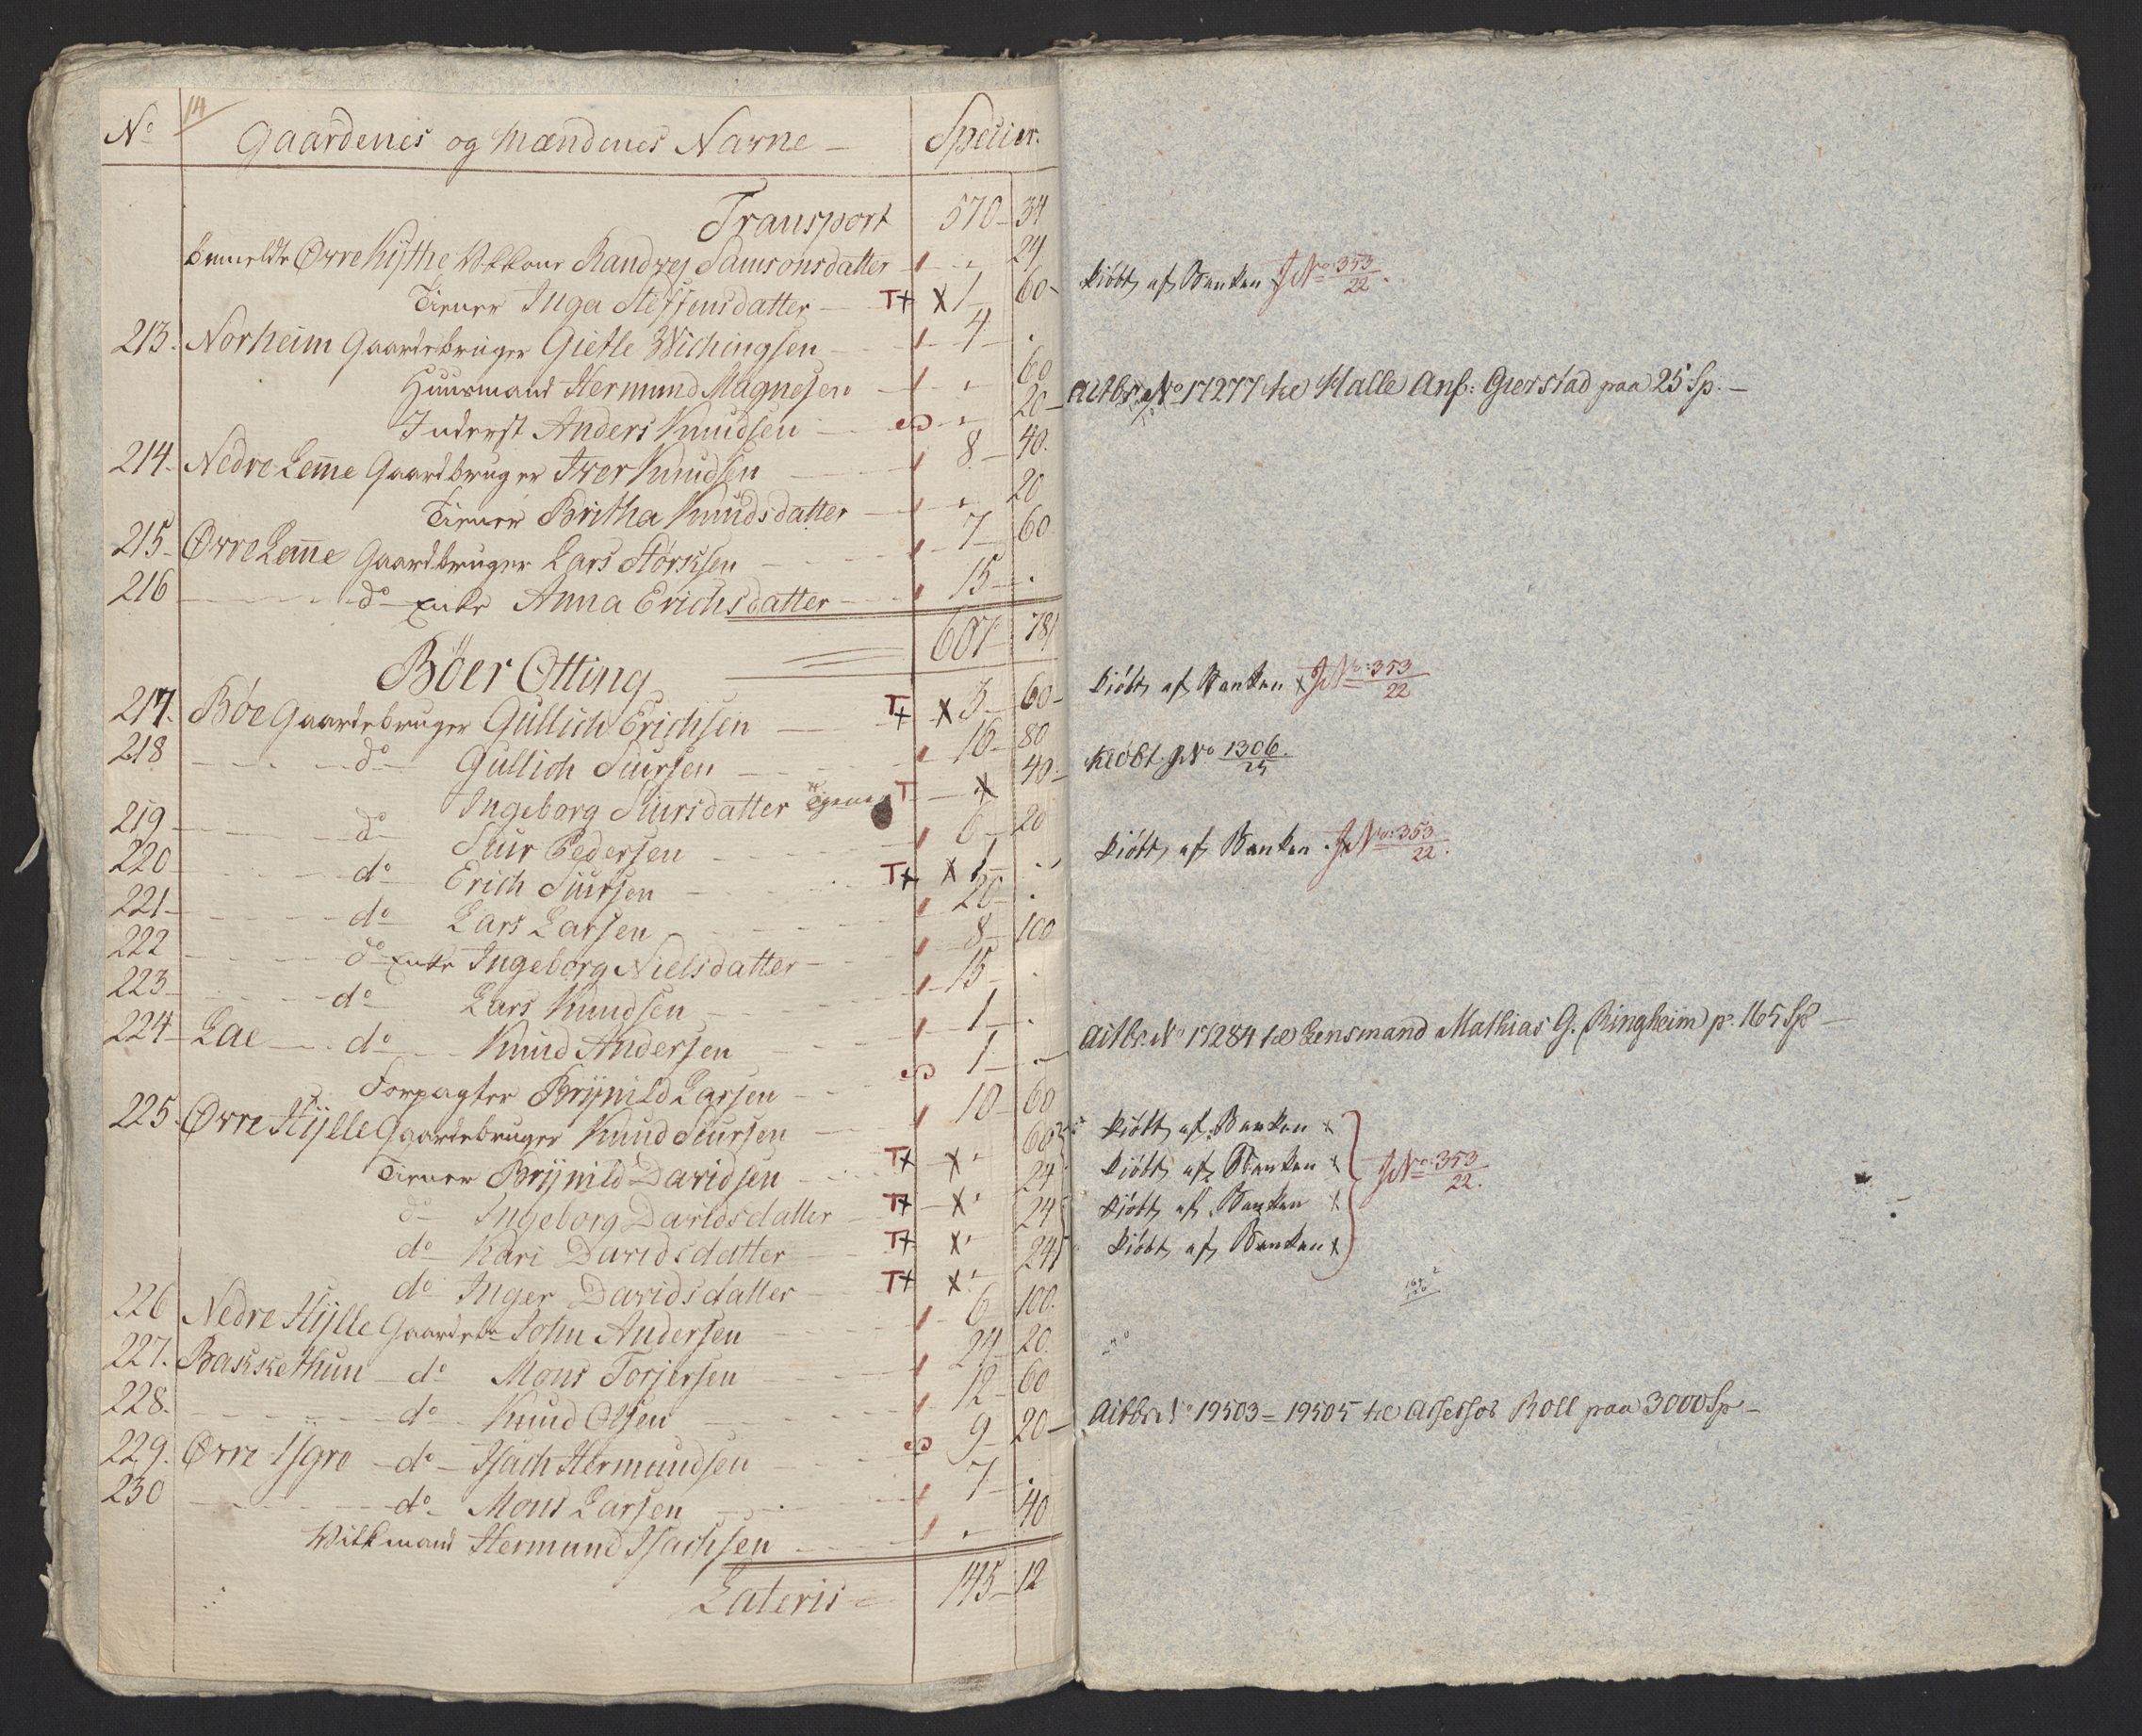 14
No Gaardenes og Mændenes Navne Spesier.
Transport 570 34
bemeldte Øvre Kijthe Randvej Samsonsdatter 24
Tiener Inga Steffensdatter T+ x 1 60
213. Norheim Gaardebruger Gietle Wichingsen 4 .
Huusmand Hermund Magnesen 60
Inderst Anders Knudsen 20
214. Nedre Leme Gaardbruger Iver Knudsen 8 40.
Tiener Britha Knudsdatter 20
215 Øvre Leme Gaardbruger Lars Størksen 7 60.
216 do Enke Anna Erichsdatter 15 .
607 78
Böer Otting
217. Böe Gaardebruger Gullich Erichsen T+ x 3 60
218 do Gullich Siursen 16 80
Ingeborg Siursdatter T x 40
219 do Siur Pedersen 6 20
220 do Erich Siursen T+ x 1 .
221 do Lars Larsen 20 .
222 do Enke Ingeborg Nielsdatter 8 100
223 do Lars Knudsen 15 .
224 Lae do Knud Andersen 1 .
Forpagter Brijnild Larsen 1
225. Øvre Hijlle Gaardebruger Knud Siursen 10 60
Tiener Brijnild Davidsen T+ x 60
do Ingeborg Davidsdatter T+ x 24
do Kari Davidsdatter T+ x 24
do Inger Davidsdatter T+ x 24
226 Nedre Hijlle Gaardebr John Andersen 6 100.
227. Baskethun do Mons Torjersen 24 20.
228. do Knud Olsen 12 60
229. Øvre Isgro do Isach Hermundsen 9 20
230 do Mons Larsen 7 .
Hermund Isachsen 40
Lateris 145 12
kiöbt af Banken J No 353/22.
No 17277 til Halle Anf: Gierstad paa 25 Sp.
kiöbt af Banken x J No: 353/22
Kiöbt J No 1306/25
kiöbt af Banken J No: 353/22.
No 17284 til Lensmand Mathias G. Ringheim p. 165 Sp
kiöbt af Banken x
kiöbt af Banken x J No: 353/22.
kiöbt af Banken x
kiöbt af Banken x
No 19503 = 19505 til Assessor Roll paa 3000 Sp